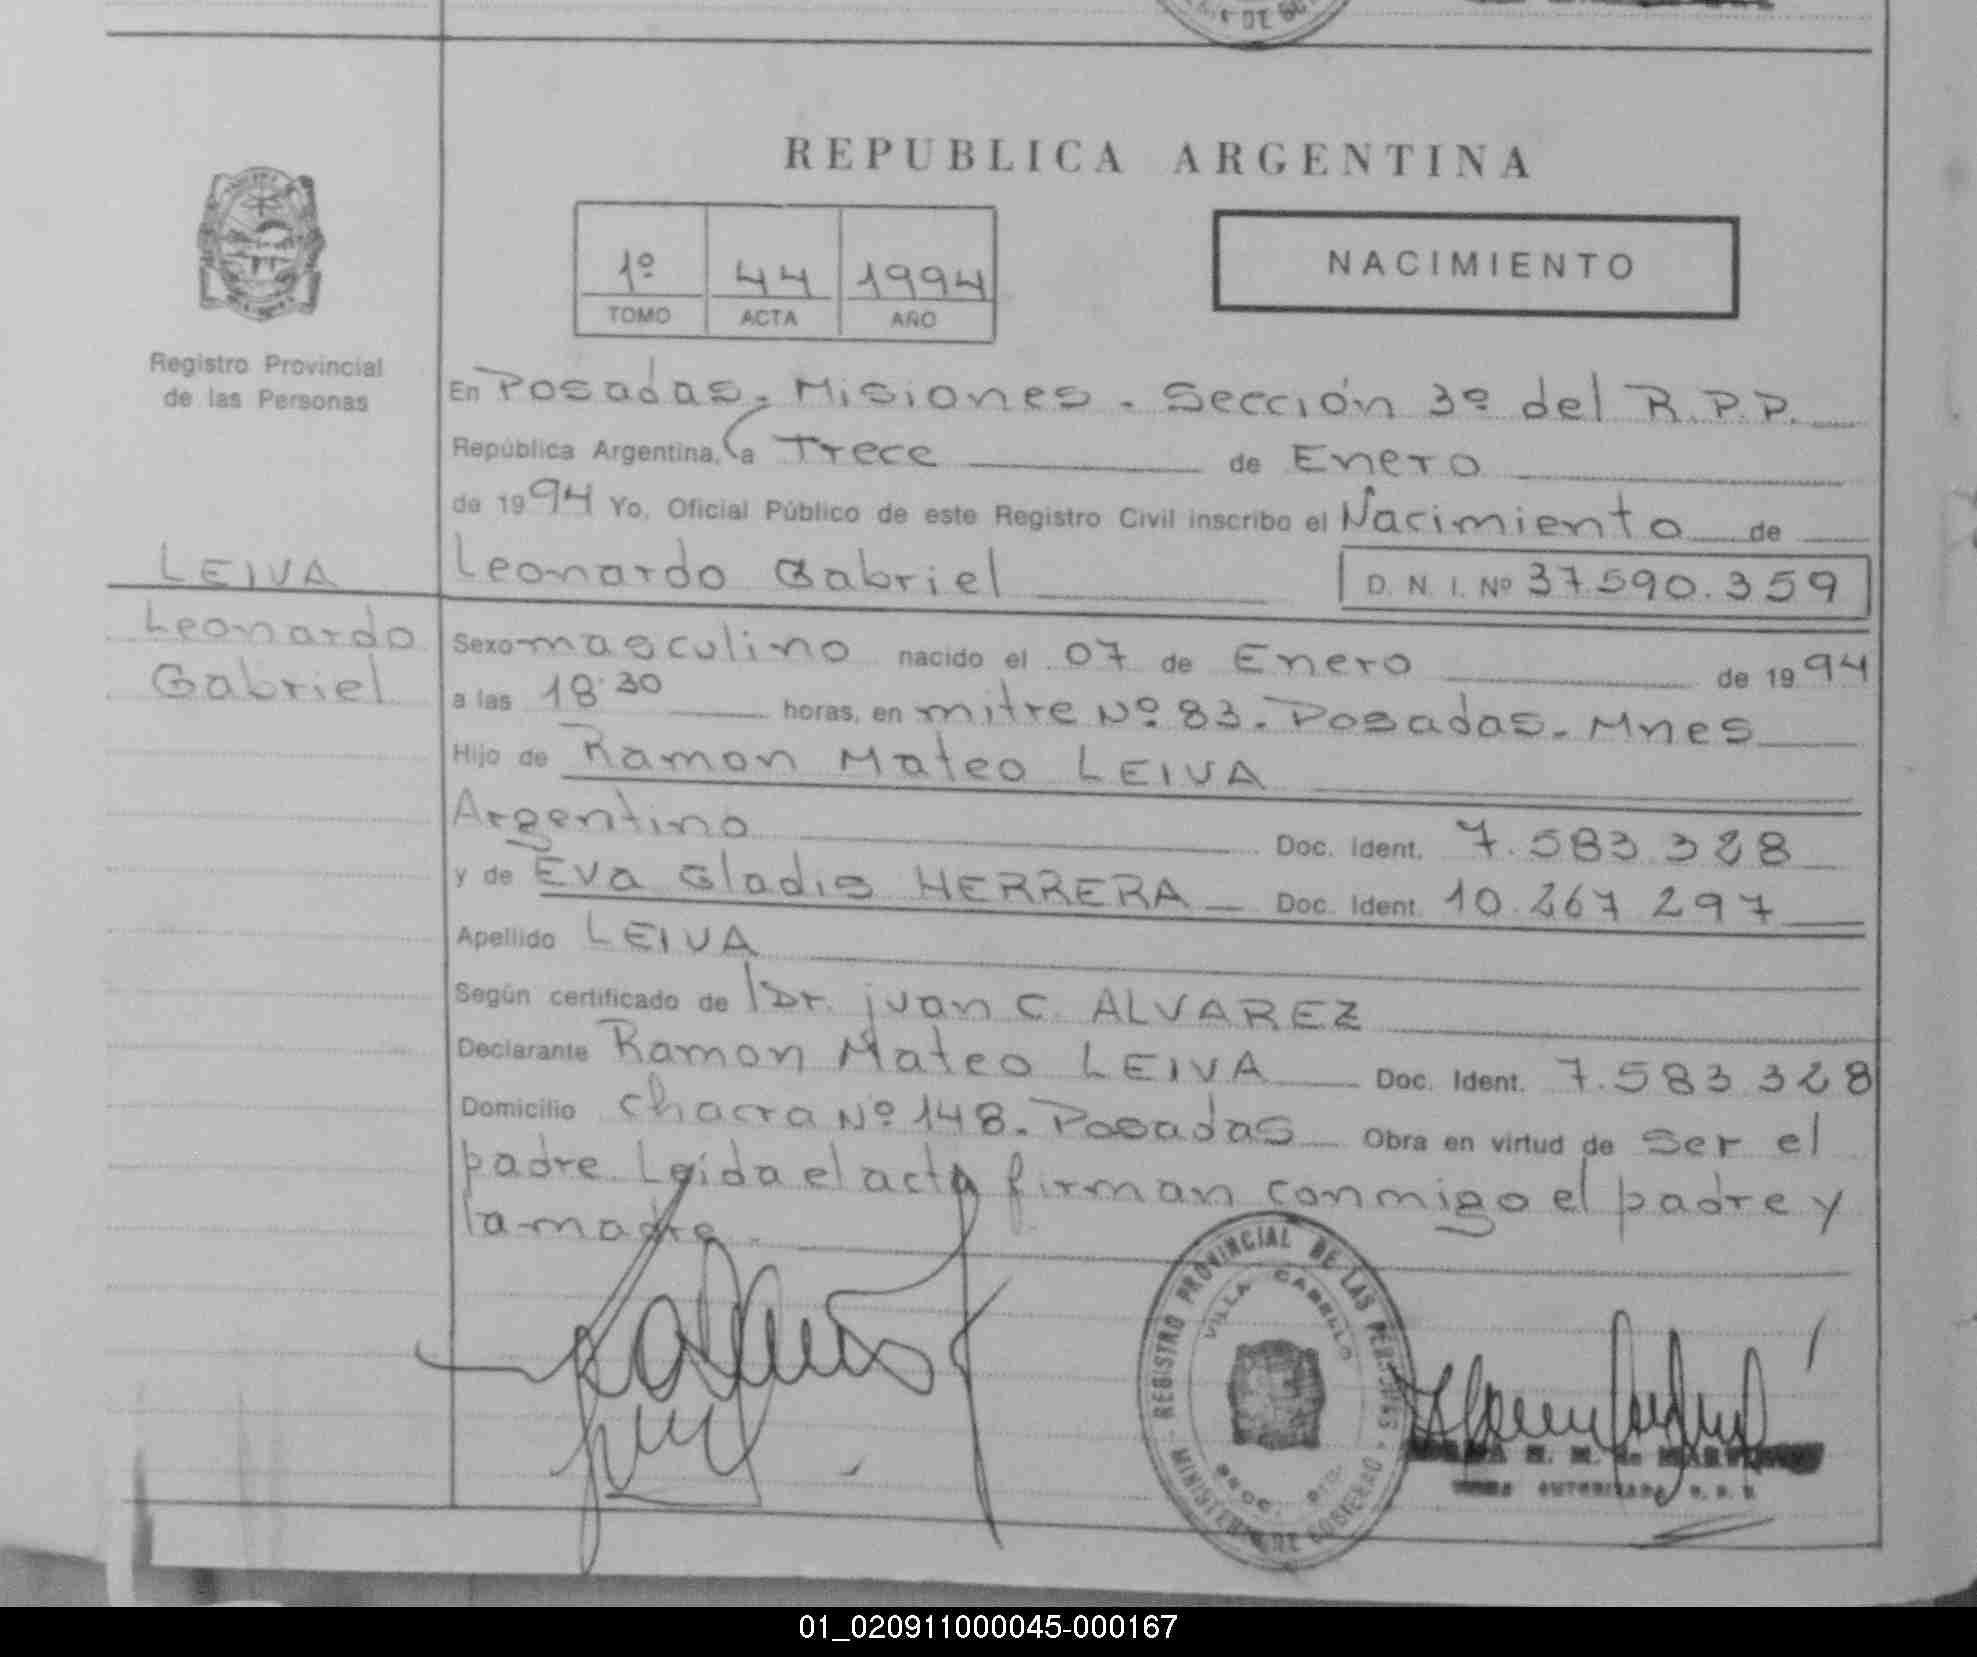 REPUBLICA ARGENTINA
1º 44 1994
TOMO ACTA AÑO
NACIMIENTO
Registro Provincial
de las Personas
En Posadas, Misiones. Sección 3º del R.P.P.
República Argentina, a Trece de Enero
de 1994 Yo, Oficial Público de este Registro Civil inscribo el Nacimiento de
Leonardo Gabriel D. N. I. Nº 37.590.359
LEIVA
Leonardo
Gabriel
Sexo masculino nacido el 07 de Enero de 1994
a las 18:30 horas, en mitre Nº 83. Posadas. Mnes
Hijo de Ramon Mateo LEIVA
Argentino Doc. Ident. 7.583.328
y de Eva Gladis HERRERA Doc. Ident. 10.267.297
Apellido LEIVA
Según certificado de Dr. juan C. ALVAREZ
Declarante Ramon Mateo LEIVA Doc. Ident. 7.583.328
Domicilio chacra Nº 148. Posadas Obra en virtud de ser el
padre. Leída el acta firman conmigo el padre y
la madre.
REGISTRO PROVINCIAL DE LAS PERSONAS
MINISTERIO DE GOBIERNO
VILLA CABELLO
01_020911000045-000167